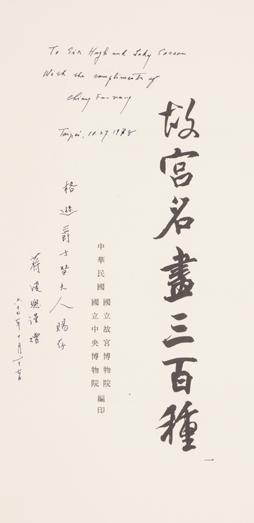 To Sir Hugh and Lady Casson
With the compliments of
Chiang Fu-tsung
Taipei, 10.27 1978
故宮名畫三百種
中華民國
國立故宮博物院
國立中央博物院
編印
爵士暨夫人賜存
蔣復璁謹贈
一